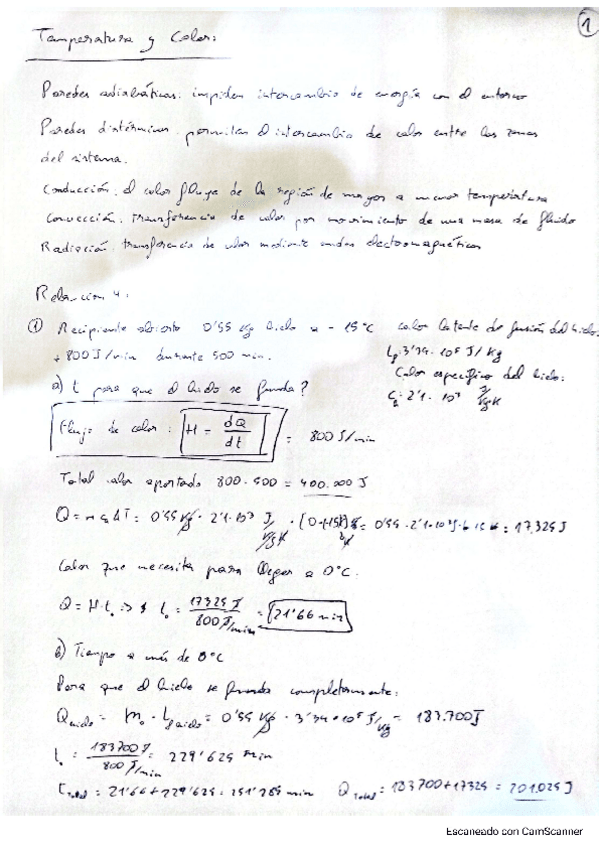 1
Temperatura y Calor:
Paredes adiabáticas: impiden intercambio de energía con el entorno
Paredes diatérminas: permiten el intercambio de calor entre las zonas
del sistema.
Conducción: el calor fluye de la región de mayor a menor temperatura
Convección: transferencia de calor por movimiento de una masa de fluido
Radiación: transferencia de calor mediante ondas electromagnéticas
Relación 4:
① Recipiente abierto 0'55 kg hielo a - 15°C
calor latente de fusión del hielo:
+ 800 J/min durante 500 min.
Lf: 3'34·10⁵ J/Kg
Calor específico del hielo:
a) t para que el hielo se funda?
2'1·10³ J/kgK
Flujo de calor: H = dQ/dt = 800 J/min
Total calor aportado 800·500 = 400.000 J
Q = m c ΔT = 0'55 kg · 2'1·10³ J/kgK = 17.325 J
Calor que necesita para llegar a 0°C.
Q = H·t => t = 17325 J / 800 J/min = 21'66 min
b) Tiempo a más de 0°C
Para que el hielo se funda completamente:
0'55 kg · 3'34·10⁵ J/kg = 183.700 J
t = 183700 J / 800 J/min = 229'625 min
t total = 21'66 + 229'625 = 251'285 min
Q Total = 183700 + 17325 = 201.025 J
Escaneado con CamScanner